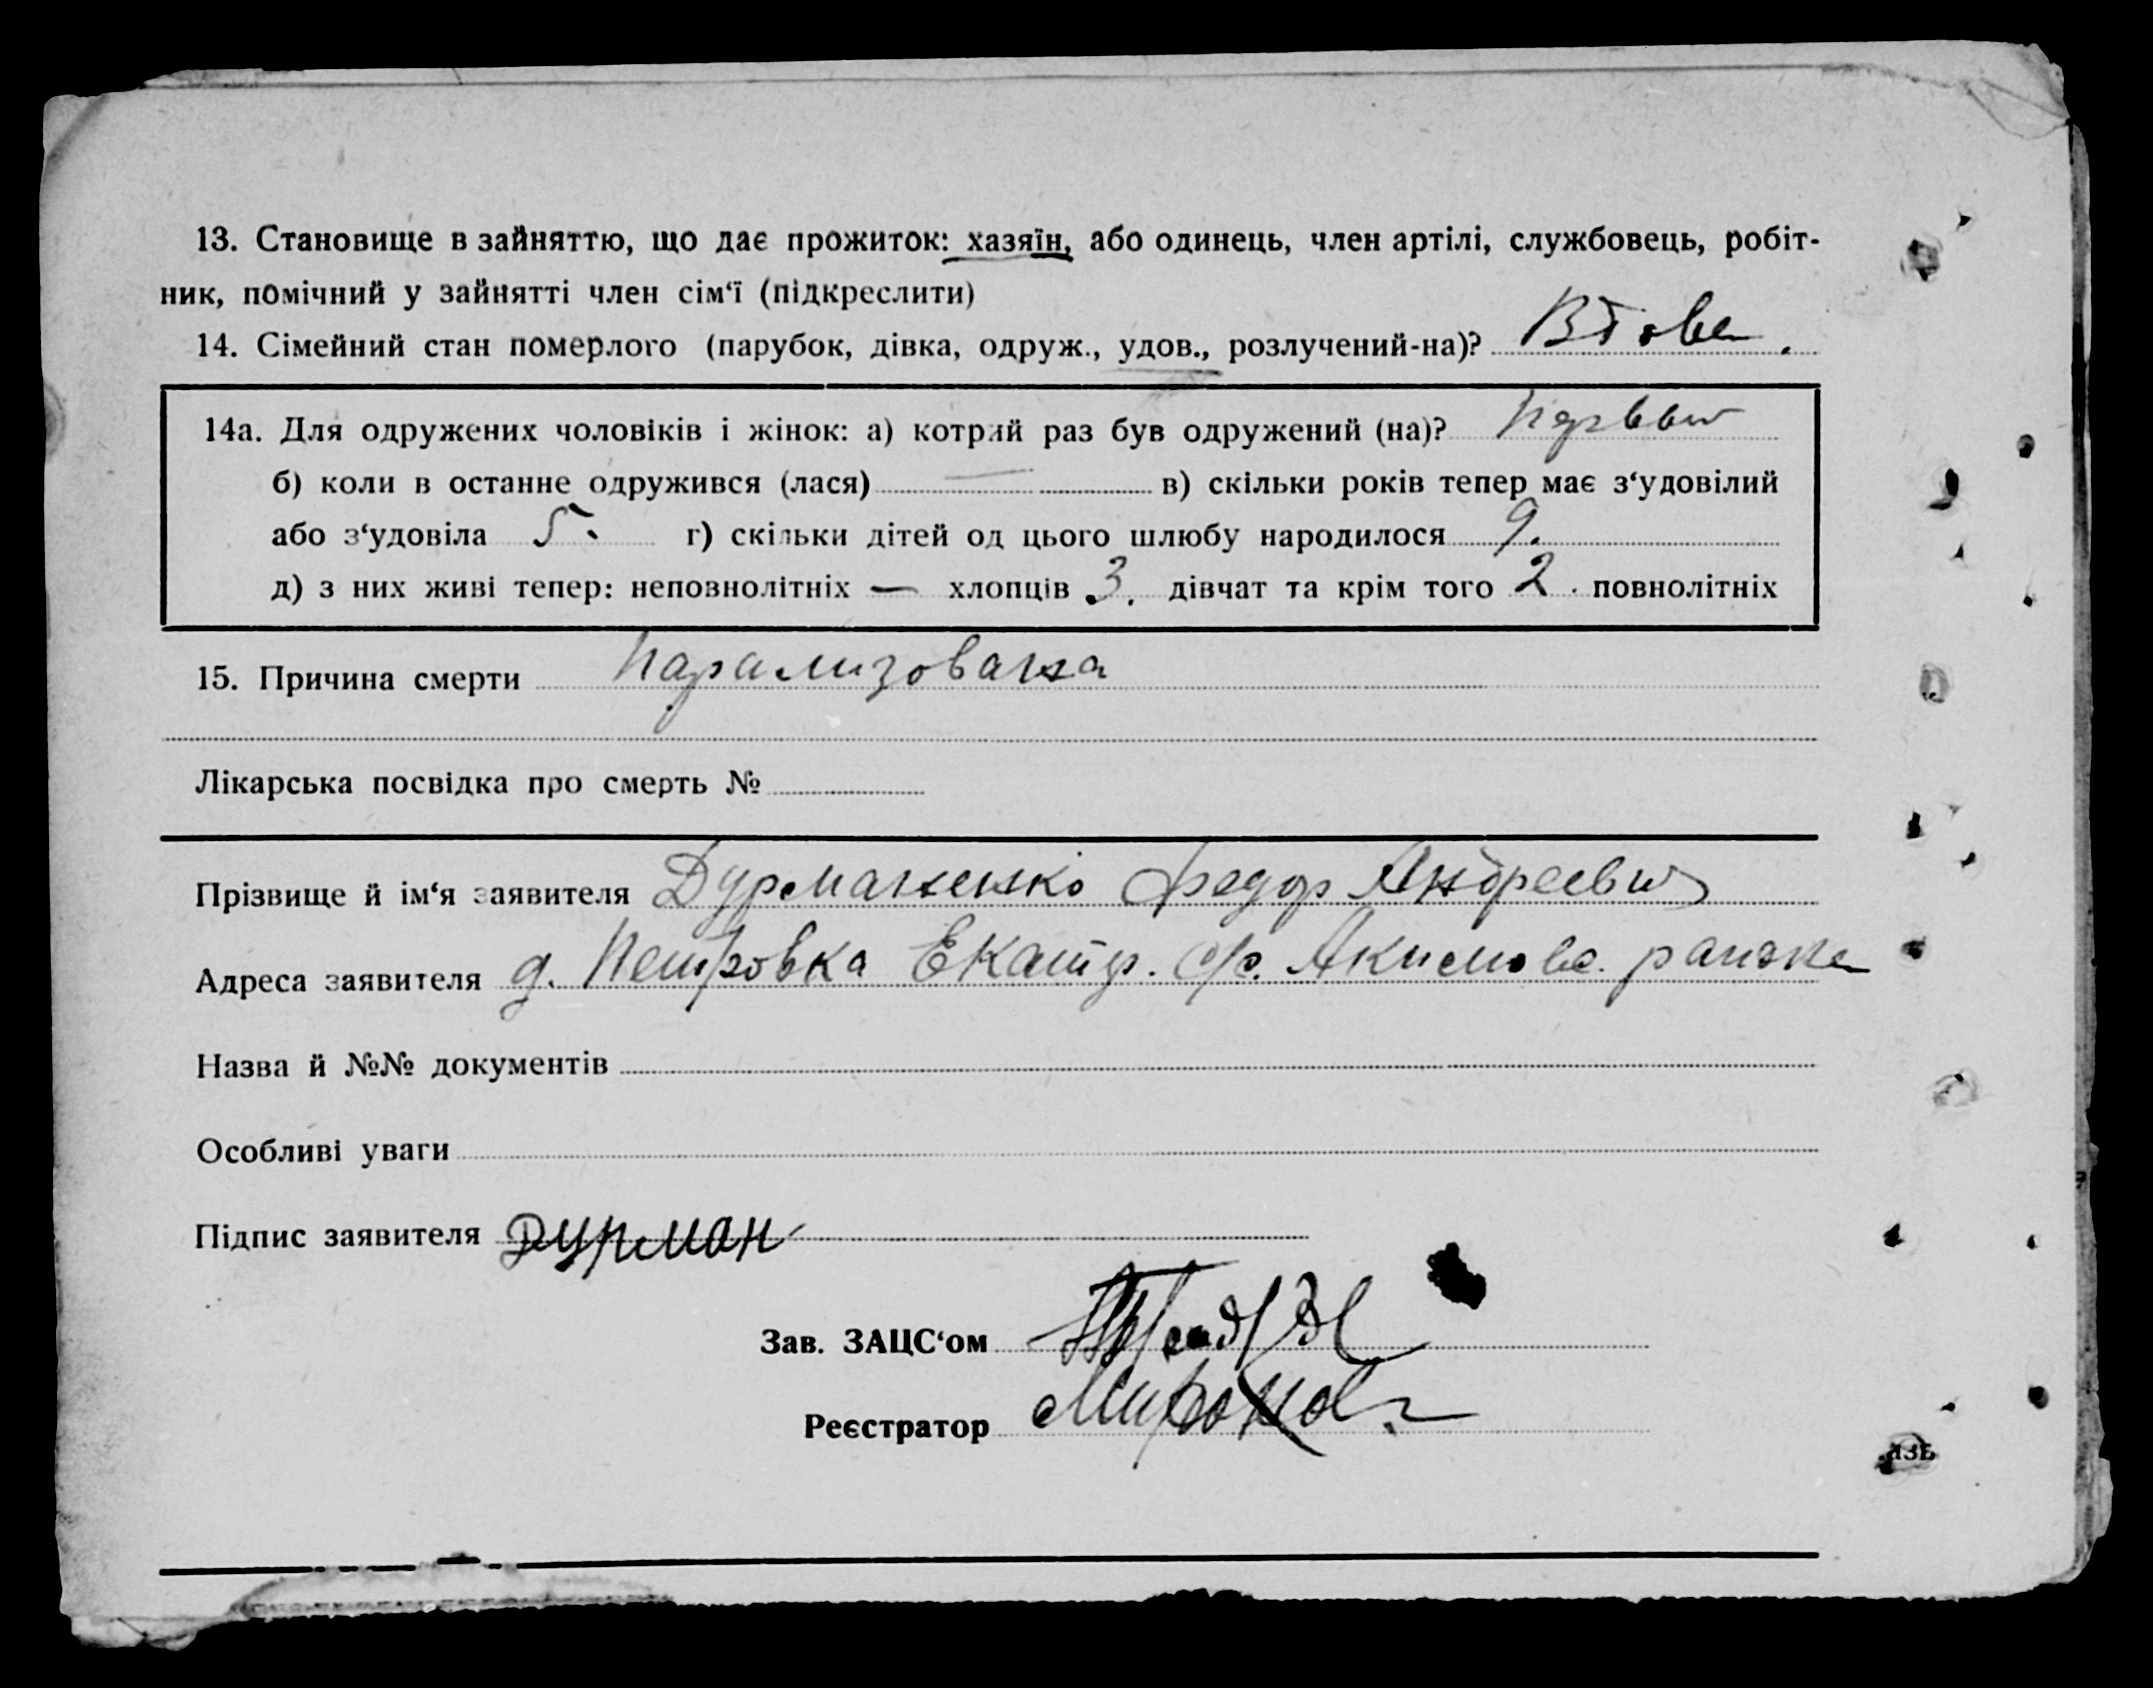 13. Становище в зайняттю, що дає прожиток: хазяїн, або одинець, член артілі, службовець, робіт-
ник, помічний у зайнятті член сім‘ї (підкреслити)
14. Сімейний стан померлого (парубок, дівка, одруж., удов., розлучений-на)?
14а. Для одружених чоловіків і жінок: а) котрий раз був одружений (на)?
б) коли в останнє одружився (лася) — в) скільки років тепер має з‘удовілий
або з‘удовіла г) скільки дітей од цього шлюбу народилося 9.
д) з них живі тепер: неповнолітніх — хлопців 3. дівчат та крім того 2. повнолітніх
15. Причина смерти Парализована
Лікарська посвідка про смерть №
Прізвище й ім‘я заявителя Дурманенко Федор Андреевич
Адреса заявителя д. Петровка Екатер. с/с. Акимовс. района
Назва й №№ документів
Особливі уваги
Підпис заявителя Дурман
Зав. ЗАЦС‘ом
Реєстратор